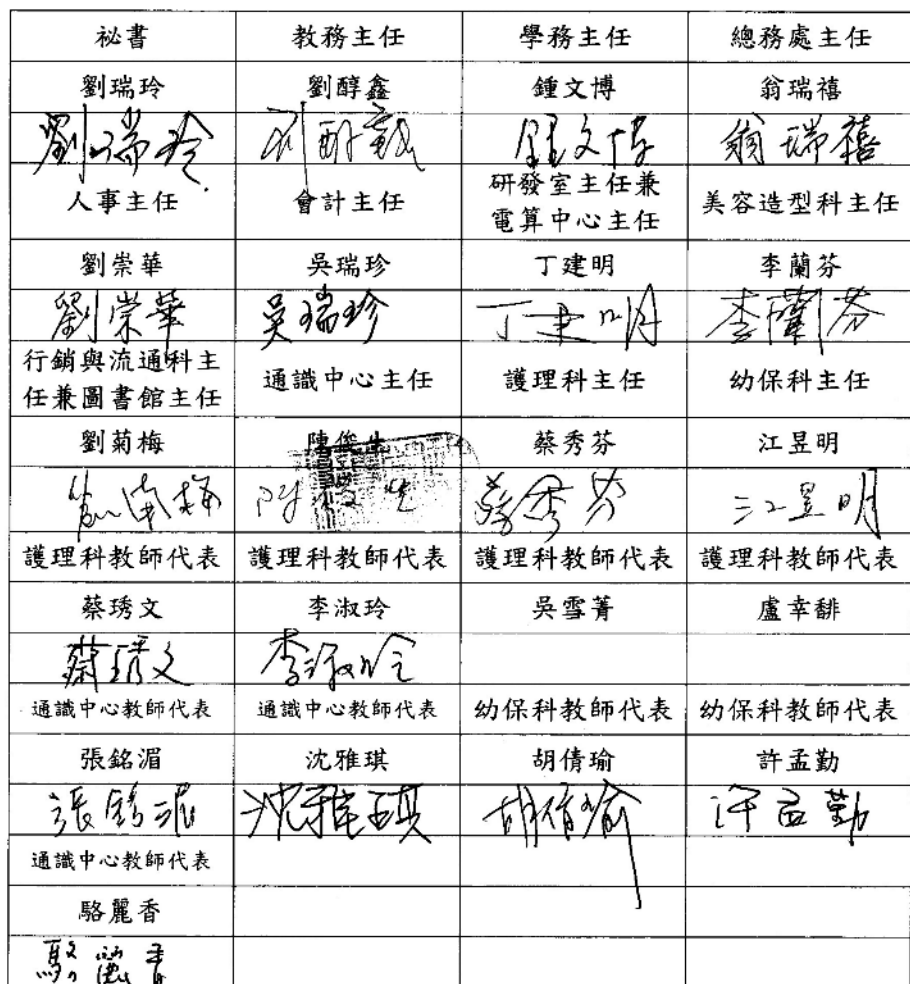 祕書 教務主任 學務主任 總務處主任
劉瑞玲 劉醇鑫 鍾文博 翁瑞禧
劉瑞玲 劉醇鑫 鍾文博 翁瑞禧
人事主任 會計主任 研發室主任兼 美容造型科主任
電算中心主任
劉崇華 吳瑞珍 丁建明 李蘭芬
劉崇華 吳瑞珍 丁建明 李蘭芬
行銷與流通科主 通識中心主任 護理科主任 幼保科主任
任兼圖書館主任
劉菊梅 陳俊生 蔡秀芬 江昱明
劉菊梅 陳俊生 蔡秀芬 江昱明
護理科教師代表 護理科教師代表 護理科教師代表 護理科教師代表
蔡琇文 李淑玲 吳雪菁 盧幸馡
蔡琇文 李淑玲
通識中心教師代表 通識中心教師代表 幼保科教師代表 幼保科教師代表
張銘湄 沈雅琪 胡倩瑜 許孟勤
張銘湄 沈雅琪 胡倩瑜 許孟勤
通識中心教師代表
駱麗香
駱麗香